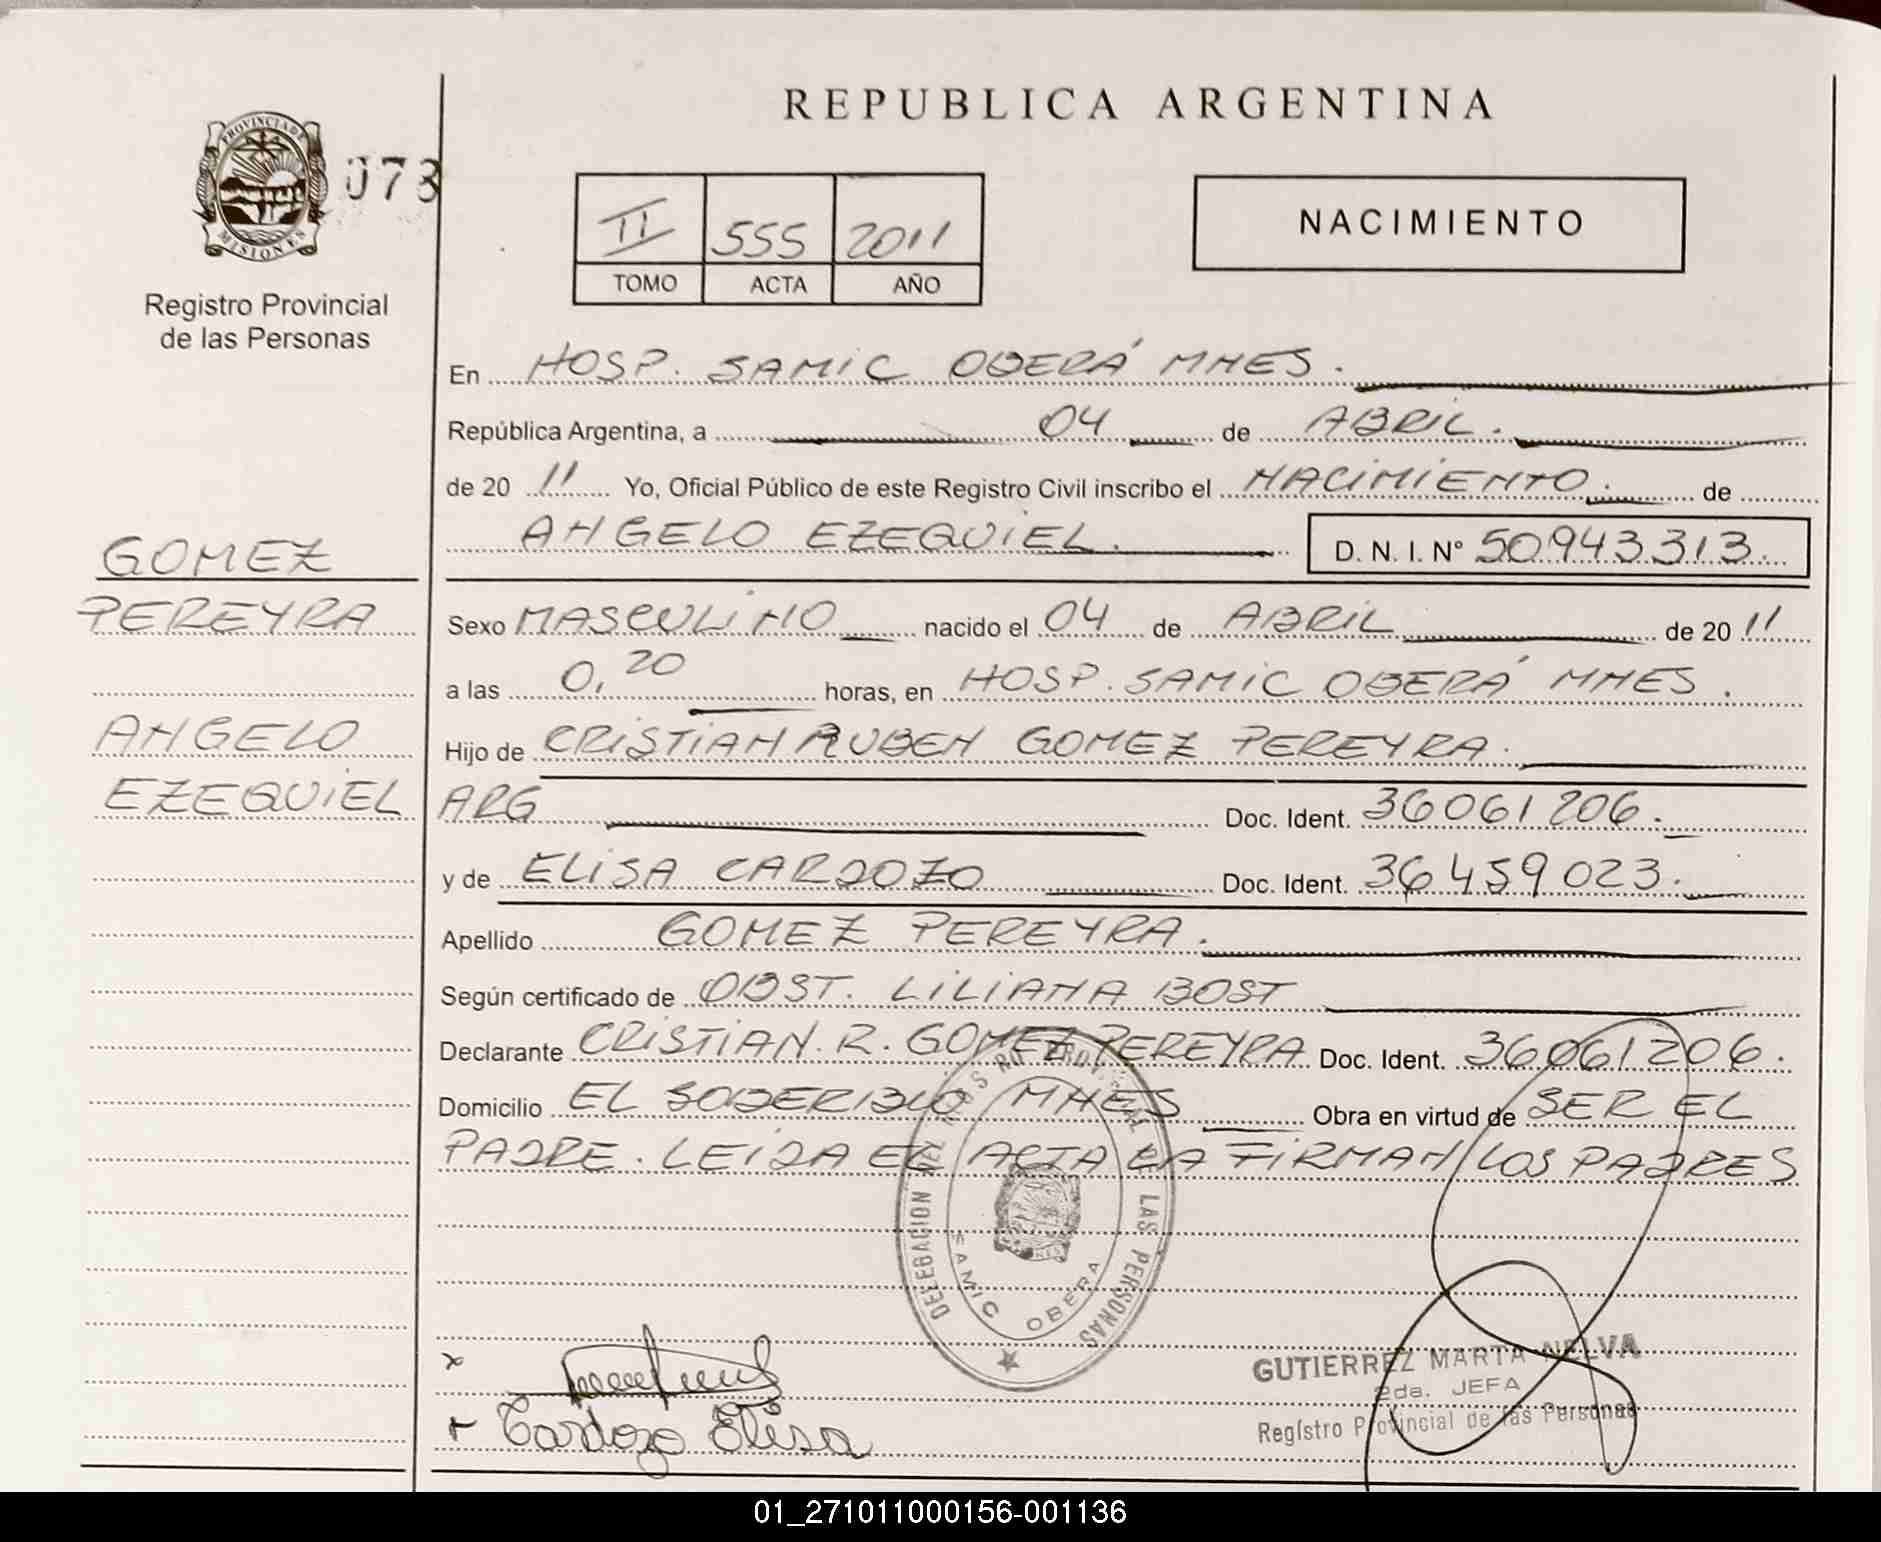 REPUBLICA ARGENTINA
PROVINCIA DE
MISIONES
073
Registro Provincial
de las Personas
II 555 2011
TOMO ACTA AÑO
NACIMIENTO
En HOSP. SAMIC OBERÁ MNES.
República Argentina, a 04 de ABRIL.
de 20 11 Yo, Oficial Público de este Registro Civil inscribo el NACIMIENTO. de
ANGELO EZEQUIEL. D. N. I. Nº 50.943.313.
GOMEZ
PEREYRA
ANGELO
EZEQUIEL
Sexo MASCULINO nacido el 04 de ABRIL de 20 11
a las 0,20 horas, en HOSP. SAMIC OBERÁ MNES.
Hijo de CRISTIAN RUBEN GOMEZ PEREYRA.
ARG Doc. Ident. 36061206.
y de ELISA CARDOZO Doc. Ident. 36459023.
Apellido GOMEZ PEREYRA.
Según certificado de OBST. LILIANA BOST
Declarante CRISTIAN. R. GOMEZ PEREYRA Doc. Ident. 36061206.
Domicilio EL SOBERBIO MNES Obra en virtud de SER EL
PADRE. LEIDA EL ACTA LA FIRMAN LOS PADRES
DELEGACION DEL PROVINCIAL DE LAS PERSONAS
SAMIC OBERA
x
Cardozo Elisa
GUTIERREZ MARTA NELVA
2da. JEFA
Registro Provincial de las Personas
01_271011000156-001136